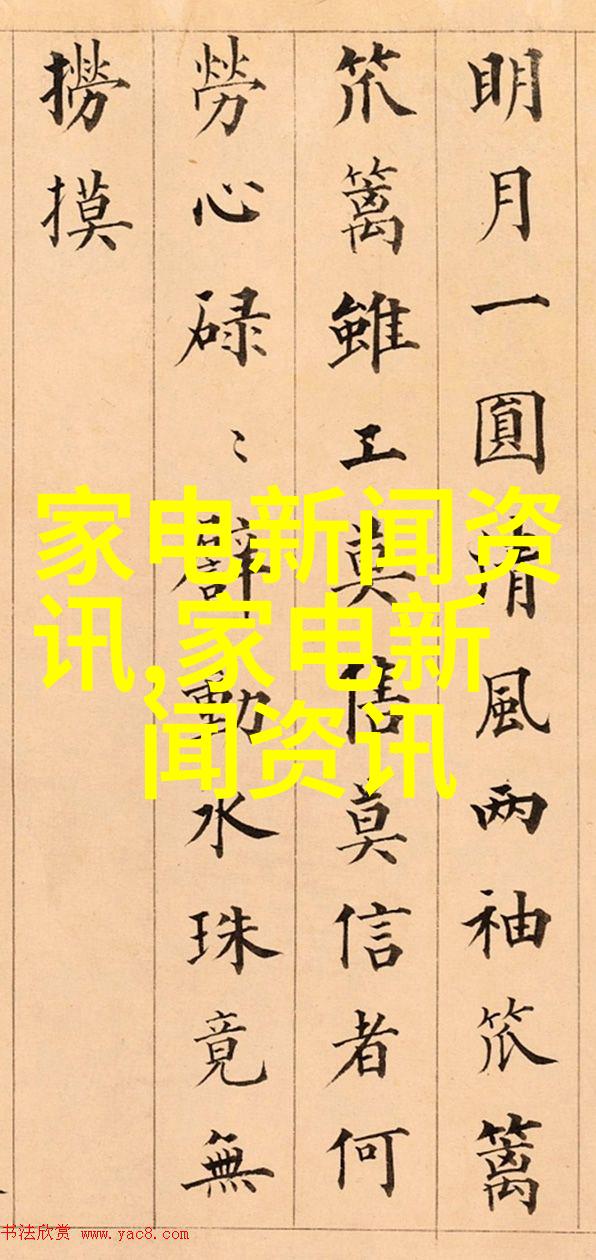 明月一圓清風两袖笊篱
笊篱雖工莫信莫信者何
勞心碌〻動水珠竟無
撈摸
家电新闻资
讯,家电新
闻资讯
书法欣赏 www.yac8.com